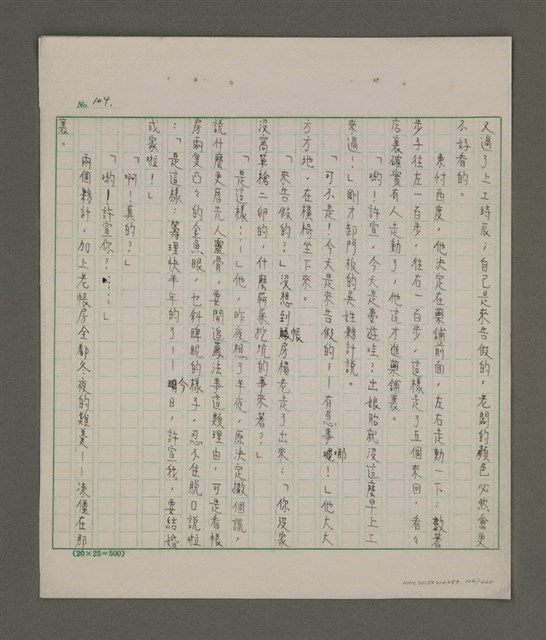 No. 104.
又過了上工時辰;自己是來告假的,老闆的顏色必然會更
不好看的。
東忖西度,他決定在藥鋪前面,左右走動一下;數著
步子往左一百步,往右一百步,這樣走了五個來回,看々
店裏確實有人走動了,他這才進藥鋪裏。
「喲!許宣,今天是夢遊哇?出娘胎就沒這麼早上工
來過!」剛才卸門板的吳姓夥計說。
「可不是!今天是來告假的——有急事哪!」他大大
方方地,在橫椅坐下來。
「來告假的?」沒想到帳房楊老走了出來:「你沒家
沒窩單槍二卵的,什麼荷鋤挖坑的事來著?」
「是這樣……」他,昨夜想了半夜,原決定撒個謊,
說什麼更居先人靈骨,要開追薦法事這類理由,可是看帳
房兩隻凸々的金魚眼,乜斜睥睨的樣子,忍不住脫口說啦
:「是這樣:籌理快半年的了——今日,許宣我,要結婚
成家啦!」
「啊!真的?」
「喲!許宣你?……」
兩個夥計,加上老帳房全都冬夜的雞糞——凍僵在那
裏。
(20×25=500)